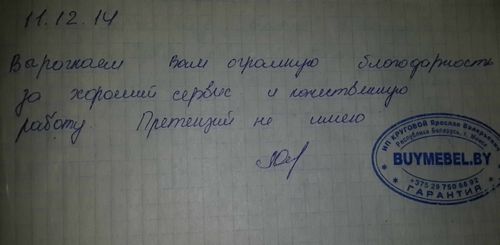 11.12.14
Варогнаем Вам огромную благодарность
за хороший сервис и качественную
работу. Претензий не имею
ИП КРУГОВОЙ Ярослав Валерьевич
Республика Беларусь, г. Минск
BUYMEBEL.BY
+375 29 750 88 92
ГАРАНТИЯ